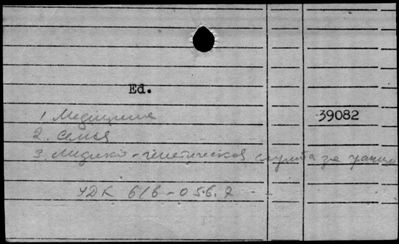 Ed.
1. Медицина 39082
2. Семья
3. Медико-генетическая служба за рубежом
УДК 616-056.7